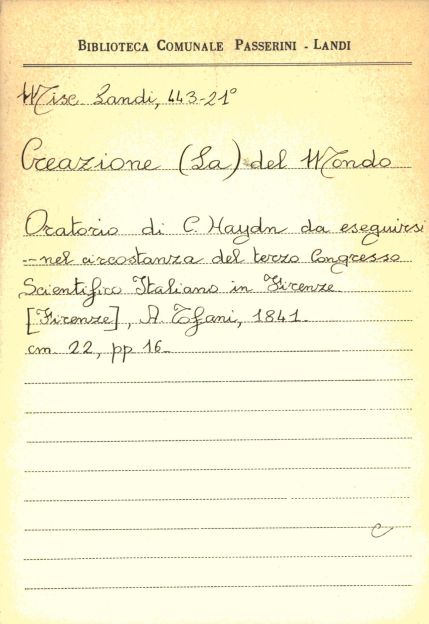 BIBLIOTECA COMUNALE PASSERINI - LANDI
Misc. Landi, 443-21°
Creazione (La) del Mondo
Oratorio di C. Haydn da eseguirsi
nel circostanza del terzo Congresso
Scientifico Italiano in Firenze.
[Firenze], A. Tofani, 1841.
cm. 22, pp 16.
C